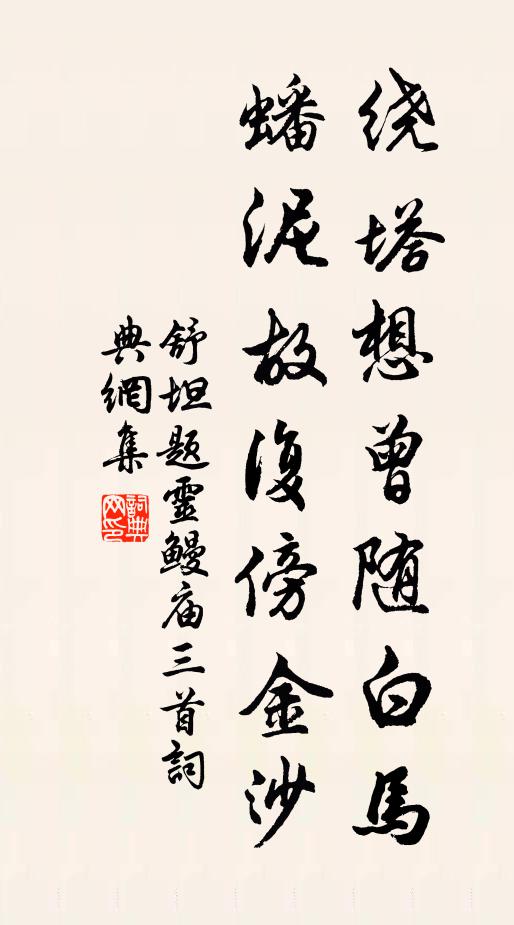 绕塔想曾随白馬
蟠泥故復傍金沙
舒坦题靈鳗庙三首詞
典網集
詞典
网印